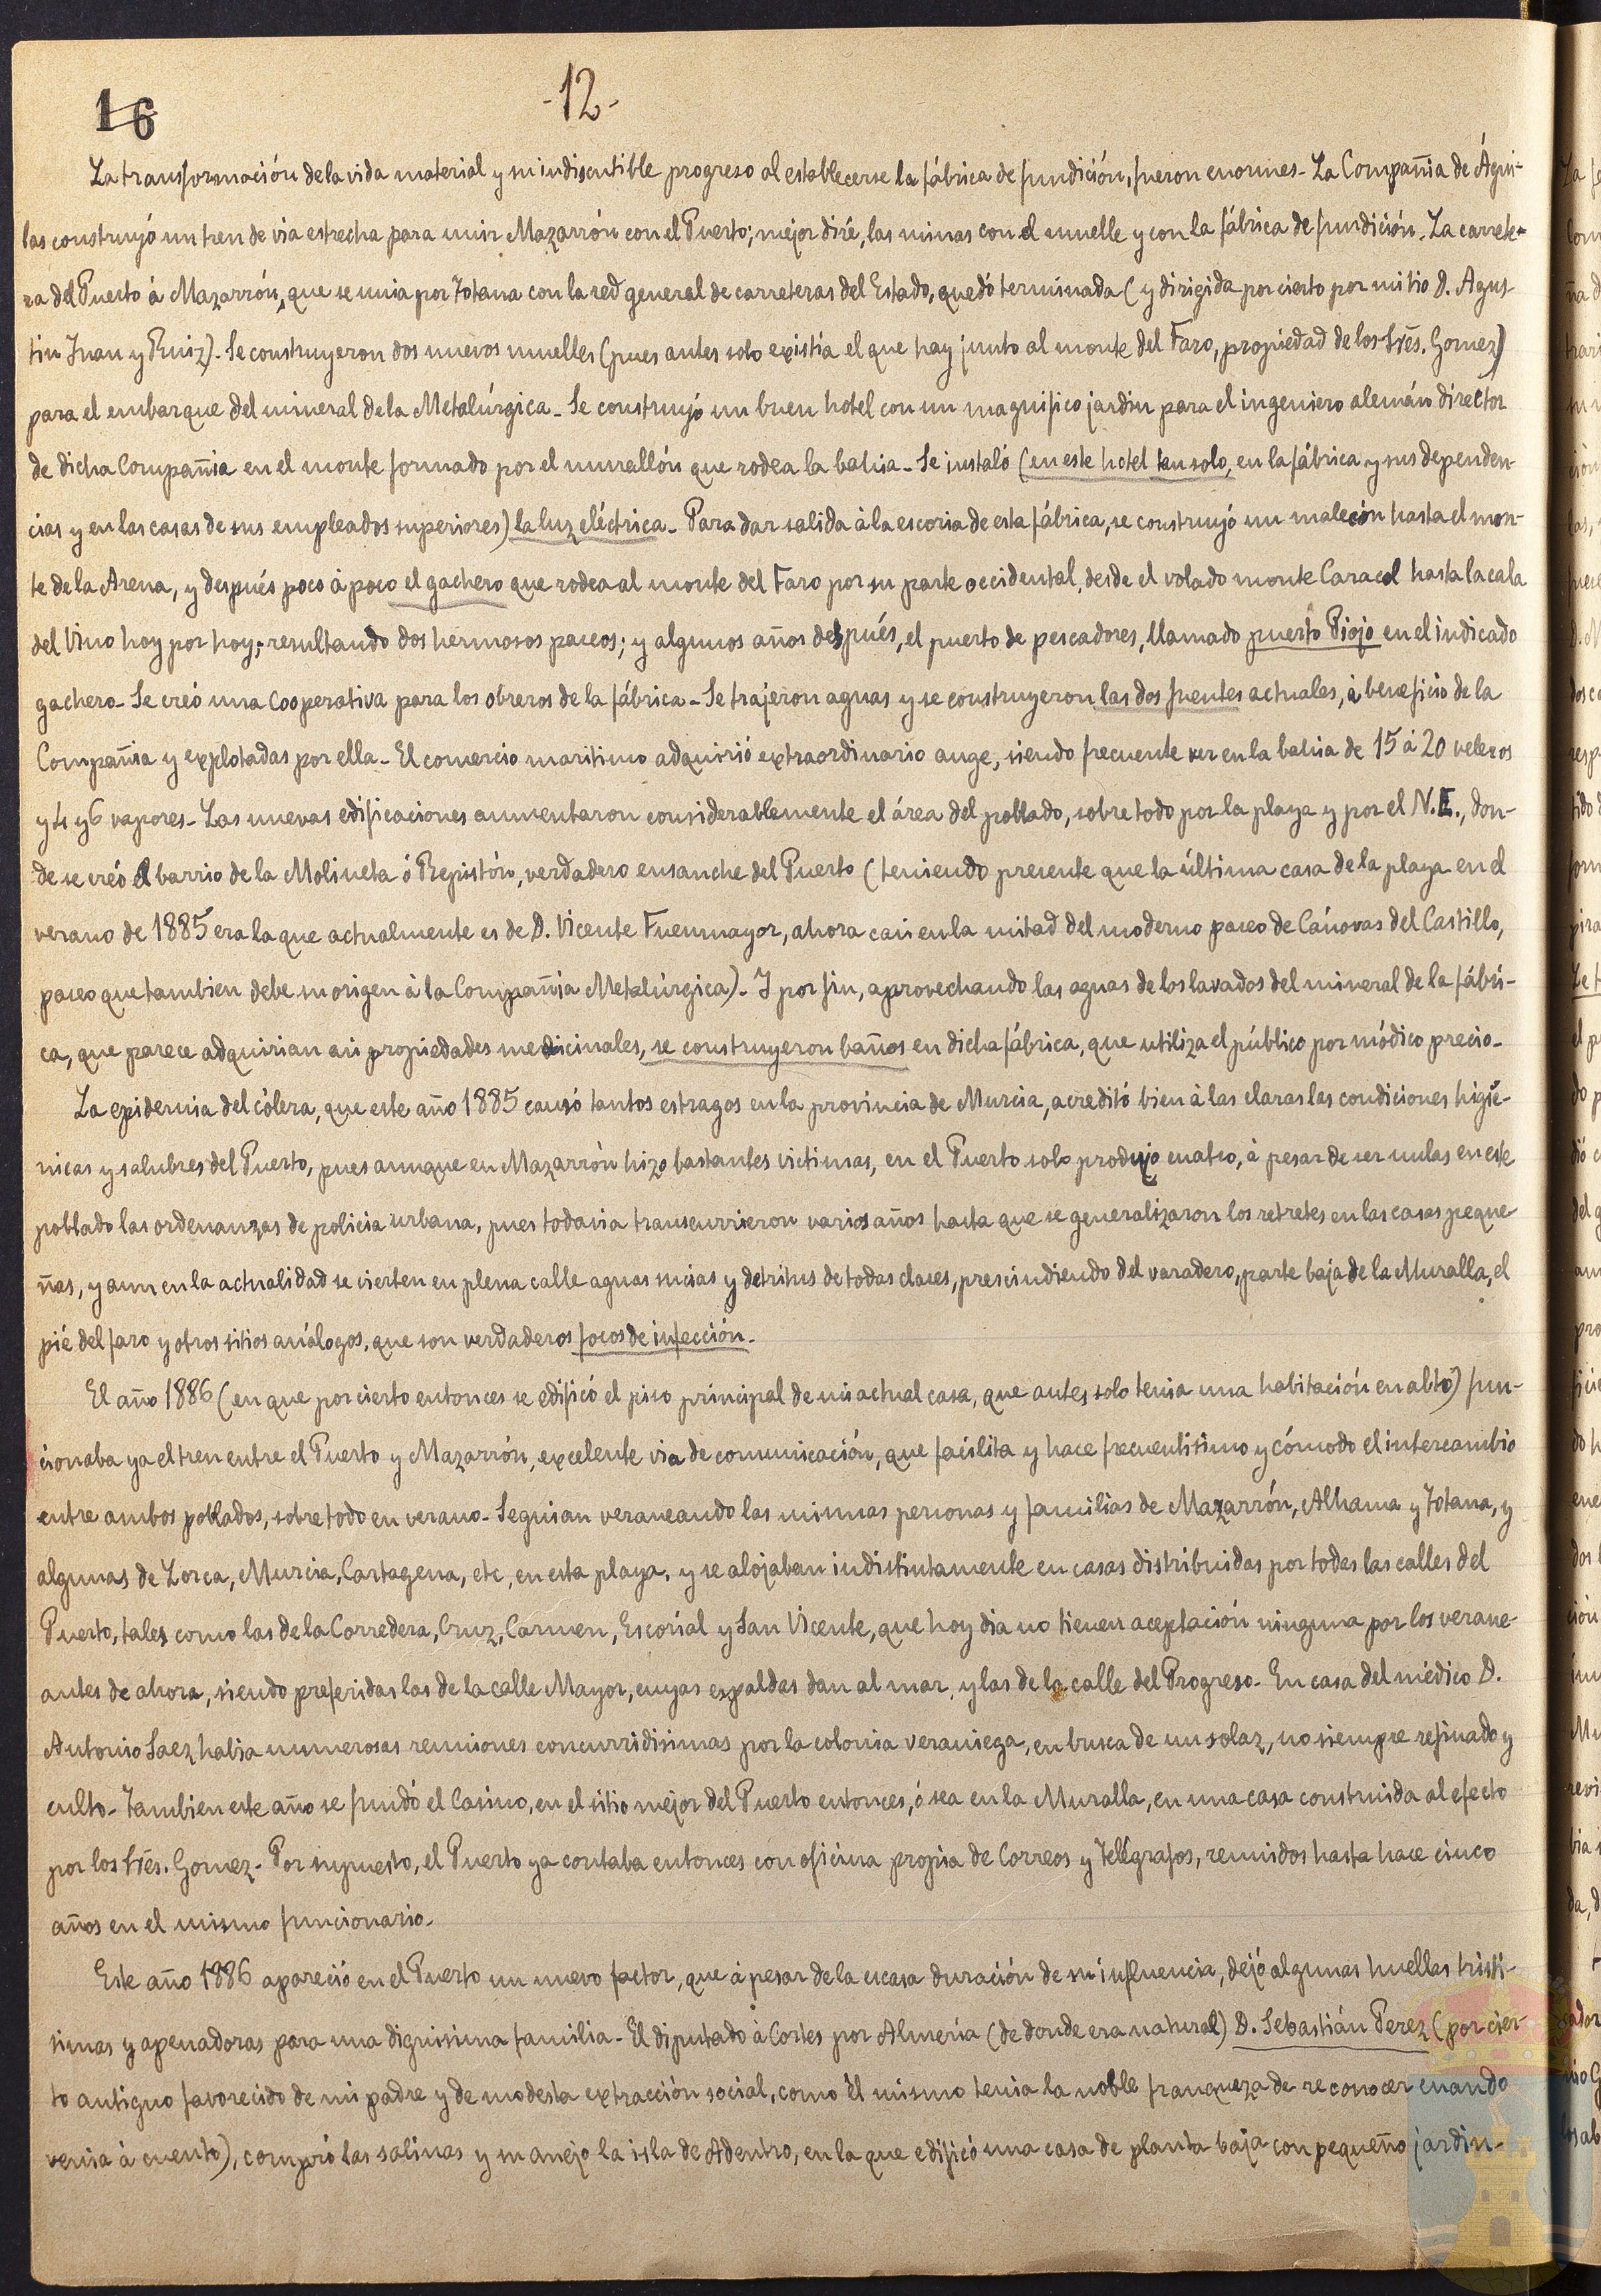 16
-12-
La transformación de la vida material y su indiscutible progreso al establecerse la fábrica de fundición, fueron enormes- La Compañia de Águi-
las construyó un tren de via estrecha para unir Mazarrón con el Puerto; mejor diré, las minas con el muelle y con la fábrica de fundición. La carrete-
ra del Puerto á Mazarrón, que se unia por Totana con la red general de carreteras del Estado, quedó terminada (y dirigida por cierto por mi tio D. Agus-
tin Juan y Ruiz)- Se construyeron dos nuevos muelles (pues antes solo existia el que hay junto al monte del Faro, propiedad de los Srés. Gomez)
para el embarque del mineral de la Metalúrgica- Se construyó un buen hotel con un magnifico jardin para el ingeniero alemán director
de dicha Compañia en el monte formado por el murallón que rodea la bahia- Se instaló (en este hotel tan solo, en la fábrica y sus dependen-
cias y en las casas de sus empleados superiores) la luz eléctrica- Para dar salida á la escoria de esta fábrica, se construyó un malecón hasta el mon-
te de la Arena, y después poco á poco el gachero que rodea al monte del Faro por su parte occidental, desde el volado monte Caracol hasta la cala
del Vino hoy por hoy; resultando dos hermosos paceos; y algunos años después, el puerto de pescadores, llamado puerto Piojo en el indicado
gachero- Se creó una Cooperativa para los obreros de la fábrica- Se trajeron aguas y se construyeron las dos fuentes actuales, á beneficio de la
Compañia y explotadas por ella- El comercio maritimo adquirió extraordinario auge, siendo frecuente ver en la bahia de 15 á 20 veleros
y 4 y 6 vapores- Las nuevas edificaciones aumentaron considerablemente el área del poblado, sobre todo por la playa y por el N.E., don-
de se creó el barrio de la Molineta ó Repistón, verdadero ensanche del Puerto (teniendo presente que la última casa de la playa en el
verano de 1885 era la que actualmente es de D. Vicente Fuenmayor, ahora casi en la mitad del moderno paseo de Cánovas del Castillo,
paseo que tambien debe su origen á la Compañia Metalúrgica)- Y por fin, aprovechando las aguas de los lavados del mineral de la fábri-
ca, que parece adquirian asi propiedades medicinales, se construyeron baños en dicha fábrica, que utiliza el público por módico precio-
La epidemia del cólera, que este año 1885 causó tantos estragos en la provincia de Murcia, acreditó bien á las claras las condiciones higié-
nicas y salubres del Puerto, pues aunque en Mazarrón hizo bastantes victimas, en el Puerto solo produjo cuatro, á pesar de ser nulas en este
poblado las ordenanzas de policia urbana, pues todavia transcurrieron varios años hasta que se generalizaron los retretes en las casas peque-
ñas, y aun en la actualidad se vierten en plena calle aguas sucias y detritus de todas clases, prescindiendo del varadero, parte baja de la Muralla, el
pié del faro y otros sitios análogos, que son verdaderos focos de infección-
El año 1886 (en que por cierto entonces se edificó el piso principal de mi actual casa, que antes solo tenia una habitación en alto) fun-
cionaba ya el tren entre el Puerto y Mazarrón, excelente via de comunicación, que facilita y hace frecuentisimo y cómodo el intercambio
entre ambos poblados, sobre todo en verano- Seguian veraneando las mismas personas y familias de Mazarrón, Alhama y Totana, y
algunas de Lorca, Murcia, Cartagena, etc, en esta playa, y se alojaban indistintamente en casas distribuidas por todas las calles del
Puerto, tales como las de la Corredera, Cruz, Carmen, Escorial y San Vicente, que hoy dia no tienen aceptación ninguna por los verane-
antes de ahora, siendo preferidas las de la calle Mayor, cuyas espaldas dan al mar, y las de la calle del Progreso- En casa del médico D.
Antonio Saez habia numerosas reuniones concurridisimas por la colonia veraniega, en busca de un solaz, no siempre refinado y
culto- Tambien este año se fundó el Casino, en el sitio mejor del Puerto entonces, ó sea en la Muralla, en una casa construida al efecto
por los Srés. Gomez- Por supuesto, el Puerto ya contaba entonces con oficina propia de Correos y Telégrafos, reunidos hasta hace cinco
años en el mismo funcionario-
Este año 1886 apareció en el Puerto un nuevo factor, que á pesar de la escasa duración de su influencia, dejó algunas huellas tristi-
simas y apenadoras para una dignisima familia- El diputado á Cortes por Almería (de donde era natural) D. Sebastián Perez (por cier-
to antiguo favorecido de mi padre y de modesta extracción social, como él mismo tenia la noble franqueza de reconocer cuando
venia á cuento), compró las salinas y su anejo la isla de Adentro, en la que edificó una casa de planta baja con pequeño jardin-